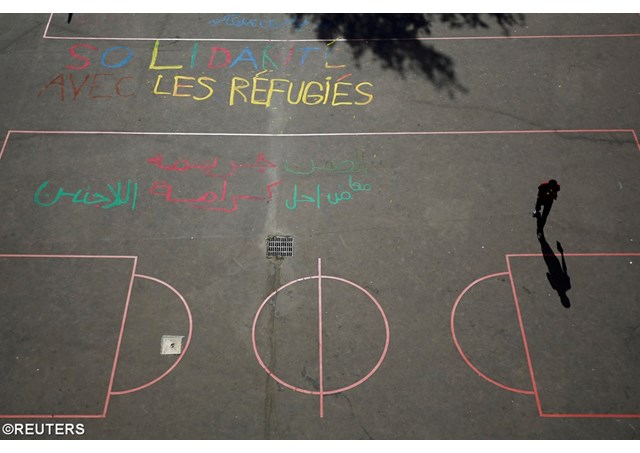 SOLIDARITÉ
AVEC LES RÉFUGIÉS
معا من اجل كرامة اللاجئين
©REUTERS